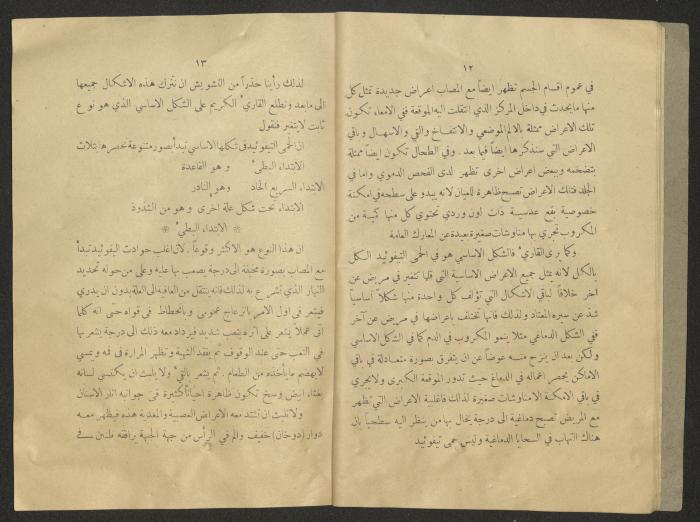 ١٢
في عموم اقسام الجسم تظهر ايضاً مع المصاب اعراض جديدة تمثل كل
منها ما يحدث في داخل المركز الذي انتقلت اليه الموقعة ففي الامعاء تكون
تلك الاعراض ممثلة بالالم الموضعي والانتفاخ والقي والاسهال وباقي
الاعراض التي سنذكرها ايضاً فيما بعد . وفي الطحال تكون ايضاً ممثلة
بتضخمه وببعض اعراض اخرى تظهر لدى الفحص الدموي واما في
الجلد فتلك الاعراض تصبح ظاهرة للعيان لانه يبدو على سطحه في امكنة
خصوصية بقع عدسية ذات لون وردي تحتوي كل منها كمية من
المكروب تجري بها مناوشات صغيرة بعيدة عن المعارك العامة
وكما يرى القارىء فالشكل الاساسي هو في الحمى التيفوئيد الشكل
بالكل لانه يمثل جميع الاعراض الاساسية التي قلما تتغير في مريض عن
آخر خلافاً لباقي الاشكال التي تؤلف كل واحدة منها شكلاً اساسياً
شذ عن سيره المعتاد ولذلك فانها تختلف باعراضها في مريض عن آخر
ففي الشكل الدماغي مثلا ينمو المكروب في الدم كما في الشكل الاساسي
ولكن بعد ان ينزح منه عوضاً عن ان يتفرق بصورة متعادلة في باقي
الاماكن يحصر اعماله في الدماغ حيث تدور الموقعة الكبرى ولا يجري
في باقي الامكنة الا مناوشات صغيرة لذلك فاغلبية الاعراض التي تظهر
مع المريض تصبح دماغية الى درجة يخال بها من ينظر اليه سطحياً بان
هناك التهاب في السحايا الدماغية وليس حمى تيفوئيد
١٣
لذلك رأينا حذراً من التشويش ان نترك هذه الاشكال جميعها
الى ما بعد ونطلع القارىء الكريم على الشكل الاساسي الذي هو نوع
ثابت لا يتغير فنقول
ان الحمى التيفوئيد في شكلها الاساسي تبدأ بصور متنوعة نحصرها بثلاث
الابتداء البطيء وهو القاعدة
الابتداء السريع الحاد وهو النادر
الابتداء تحت شكل علة اخرى وهو من الشذوذ
* الابتداء البطيء *
ان هذا النوع هو الاكثر وقوعاً . لان اغلب حوادث التيفوئيد تبدأ
مع المصاب بصورة مخيفة الى درجة يصعب بها عليه وعلى من حوله تحديد
النهار الذي تشرع به لذلك فانه ينتقل من العافية الى العلة بدون ان يدري
فيشعر في اول الامر بانزعاج عمومي وبانحطاط في قواه حتى انه كلما
اتى عملاً يشعر على اثره بتعب شديد فيزداد معه ذلك الى درجة يشعر بها
في التعب حتى عند الوقوف ثم يفقد الشهية وتظهر المرارة في فمه ويمسي
لا يهضم ما يأخذه من الطعام . ثم يشعر بالقيء ولا يلبث ان يكتسي لسانه
بغشاء ابيض وسخ تكون ظاهرة احياناً كثيرة في جوانبه اثار الاسنان
ولا تلبث ان تشتد معه الاعراض العصبية والمعدية هذه فيظهر معه
دوار (دوخان) خفيف والم في الرأس من جهة الجبهة يرافقه طنين في